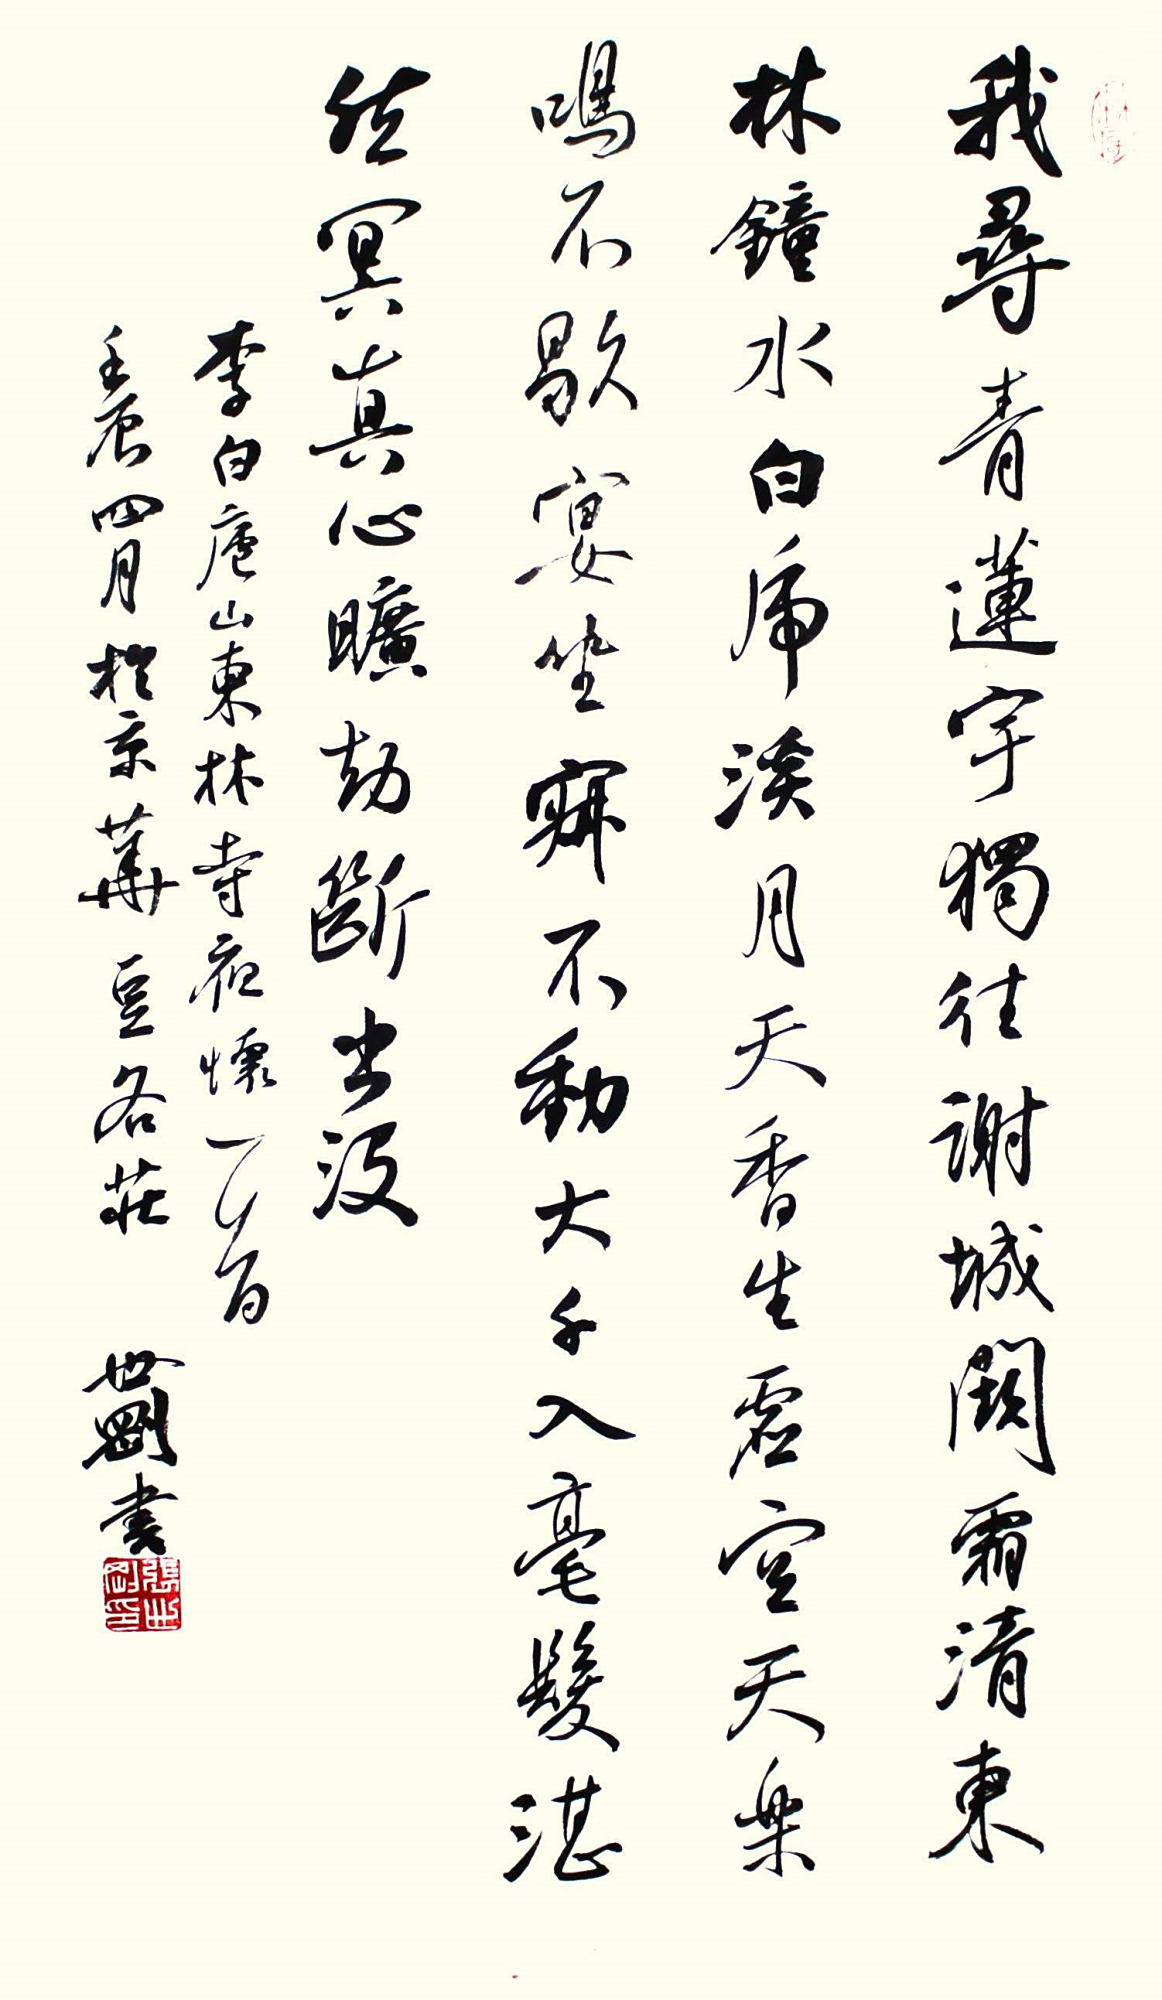 我尋青蓮宇獨往謝城闕霜清東
林鐘水白虎溪月天香生虛空天樂
鳴不歇宴坐寂不動大千入毫髮湛
然冥真心曠劫斷出沒
李白廬山東林寺夜懷一首
壬辰四月於京華豆各莊 世剛書
張世剛印